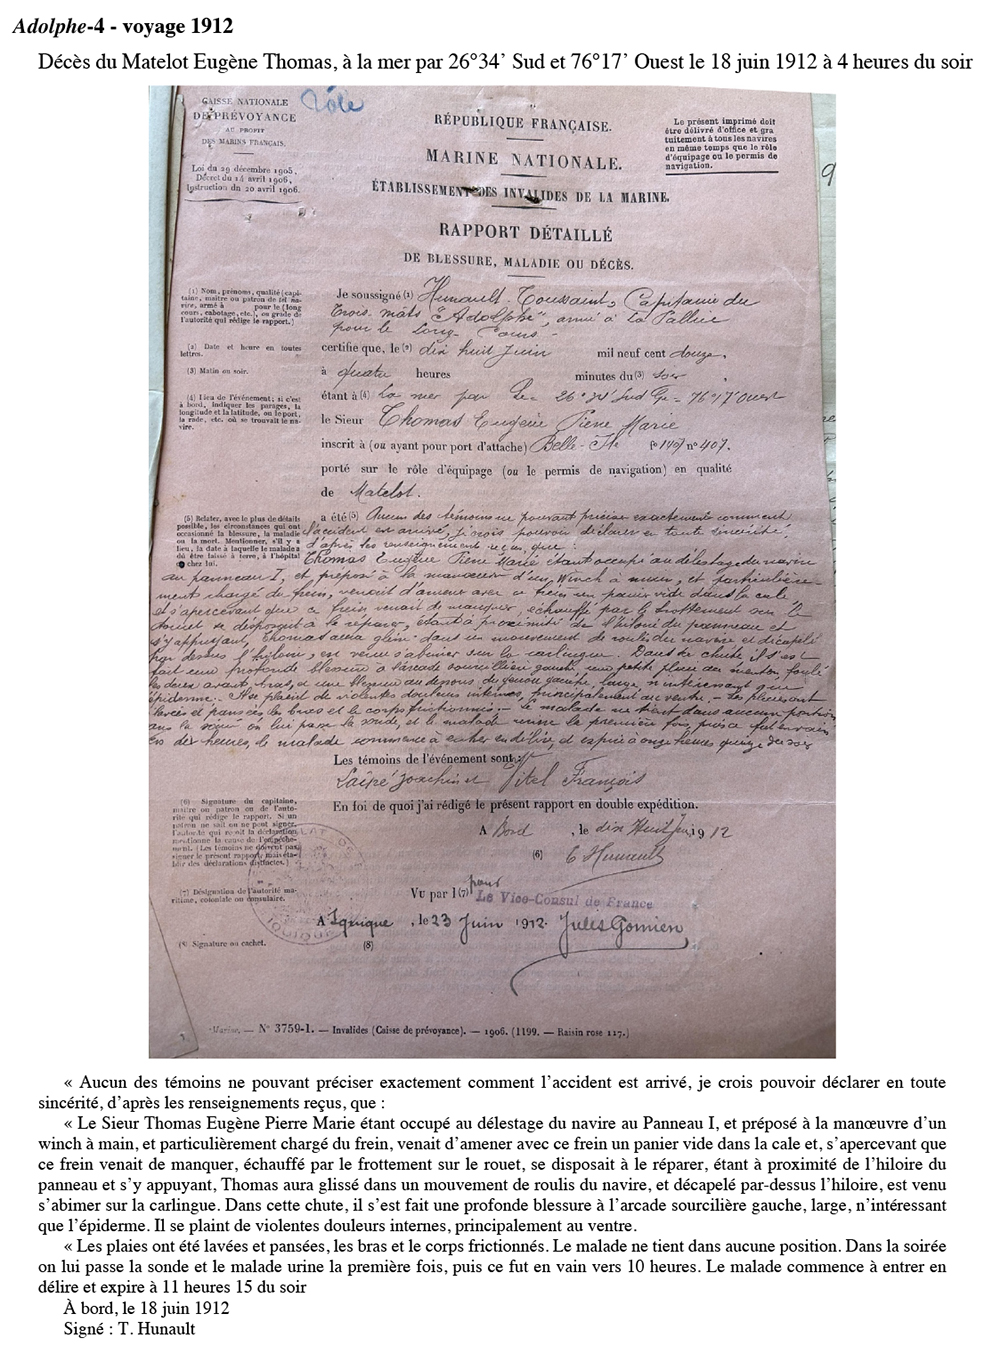 Adolphe-4 - voyage 1912
Décès du Matelot Eugène Thomas, à la mer par 26°34’ Sud et 76°17’ Ouest le 18 juin 1912 à 4 heures du soir
CAISSE NATIONALE
DE PRÉVOYANCE
AU PROFIT
DES MARINS FRANÇAIS.
Loi du 29 décembre 1905,
Décret du 14 avril 1906,
Instruction du 20 avril 1906.
Rôle
RÉPUBLIQUE FRANÇAISE.
MARINE NATIONALE.
ÉTABLISSEMENT DES INVALIDES DE LA MARINE.
RAPPORT DÉTAILLÉ
DE BLESSURE, MALADIE OU DÉCÈS.
Le présent imprimé doit
être délivré d'office et gra
tuitement à tous les navires
en même temps que le rôle
d'équipage ou le permis de
navigation.
(1) Nom, prénoms, qualité (capi-
taine, maître ou patron de tel na-
vire, armé à pour le (long
cours, cabotage, etc.), ou grade de
l'autorité qui rédige le rapport.)
(2) Date et heure en toutes
lettres.
(3) Matin ou soir.
(4) Lieu de l'événement; si c'est
à bord, indiquer les parages, la
longitude et la latitude, ou le port,
la rade, etc. où se trouvait le na-
vire.
Je soussigné (1) Hunault Toussaint, Capitaine du
Trois mâts "Adolphe", armé à La Pallice
pour le Long-Cours
certifie que, le (2) dix huit Juin mil neuf cent douze,
à quatre heures minutes du (3) soir,
étant à (4) La mer par 26°34' Sud 76°17' Ouest
le Sieur Thomas Eugène Pierre Marie
inscrit à (ou ayant pour port d'attache) Belle-Ile n° 407.
porté sur le rôle d'équipage (ou le permis de navigation) en qualité
de Matelot.
(5) Relater, avec le plus de détails
possible, les circonstances qui ont
occasionné la blessure, la maladie
ou la mort. Mentionner, s'il y a
lieu, la date à laquelle le malade a
dû être laissé à terre, à l'hôpital
ou chez lui.
a été (5) Aucun des témoins ne pouvant préciser exactement comment
l'accident est arrivé, je crois pouvoir déclarer en toute sincérité,
d'après les renseignements reçus, que :
Thomas Eugène Pierre Marie étant occupé au délestage du navire
au panneau I, et préposé à la manœuvre d'un Winch à main, et particulière-
ment chargé du frein, venait d'amener avec ce frein un panier vide dans la cale
et s'apercevant que ce frein venait de manquer, échauffé par le frottement sur le
rouet se disposait à le réparer, étant à proximité de l'hiloire du panneau et
s'y appuyant, Thomas aura glissé dans un mouvement de roulis du navire et décapelé
par dessus l'hiloire, est venu s'abimer sur la carlingue. Dans cette chute il s'est
fait une profonde blessure à l'arcade sourcilière gauche, une petite plaie au menton, foulé
les deux avant bras, et une blessure au dessous du genou gauche, large, n'intéressant que
l'épiderme. Il se plaint de violentes douleurs internes, principalement au ventre. Les plaies ont
été lavées et pansées, les bras et le corps frictionnés. Le malade ne tient dans aucune position
dans la soirée on lui passe la sonde, et le malade urine la première fois, puis ce fut en vain
dix heures, le malade commence à entrer en délire, et expire à onze heures quinze du soir
Les témoins de l'événement sont :
Joachim et Vitel François
En foi de quoi j'ai rédigé le présent rapport en double expédition.
A Bord, le dix Huit Juin 1912
(6) T Hunault
(6) Signature du capitaine,
maître ou patron ou de l'auto-
rité qui rédige le rapport. Si un
patron ne sait ou ne peut signer,
l'autorité qui reçoit la déclaration
mentionne la cause de l'empêche-
ment. (Les témoins ne doivent pas
signer le présent rapport, mais éta-
blir des déclarations distinctes.)
(7) Désignation de l'autorité ma-
ritime, coloniale ou consulaire.
(8) Signature ou cachet.
Vu par l (7) pour
Le Vice-Consul de France
A Iquique, le 23 Juin 1912. Jules Gomien
(8)
Marine. — N° 3759-1. — Invalides (Caisse de prévoyance). — 1906. (1199. — Raisin rose 117.)
« Aucun des témoins ne pouvant préciser exactement comment l’accident est arrivé, je crois pouvoir déclarer en toute
sincérité, d’après les renseignements reçus, que :
« Le Sieur Thomas Eugène Pierre Marie étant occupé au délestage du navire au Panneau I, et préposé à la manœuvre d’un
winch à main, et particulièrement chargé du frein, venait d’amener avec ce frein un panier vide dans la cale et, s’apercevant que
ce frein venait de manquer, échauffé par le frottement sur le rouet, se disposait à le réparer, étant à proximité de l’hiloire du
panneau et s’y appuyant, Thomas aura glissé dans un mouvement de roulis du navire, et décapelé par-dessus l’hiloire, est venu
s’abimer sur la carlingue. Dans cette chute, il s’est fait une profonde blessure à l’arcade sourcilière gauche, large, n’intéressant
que l’épiderme. Il se plaint de violentes douleurs internes, principalement au ventre.
« Les plaies ont été lavées et pansées, les bras et le corps frictionnés. Le malade ne tient dans aucune position. Dans la soirée
on lui passe la sonde et le malade urine la première fois, puis ce fut en vain vers 10 heures. Le malade commence à entrer en
délire et expire à 11 heures 15 du soir
À bord, le 18 juin 1912
Signé : T. Hunault